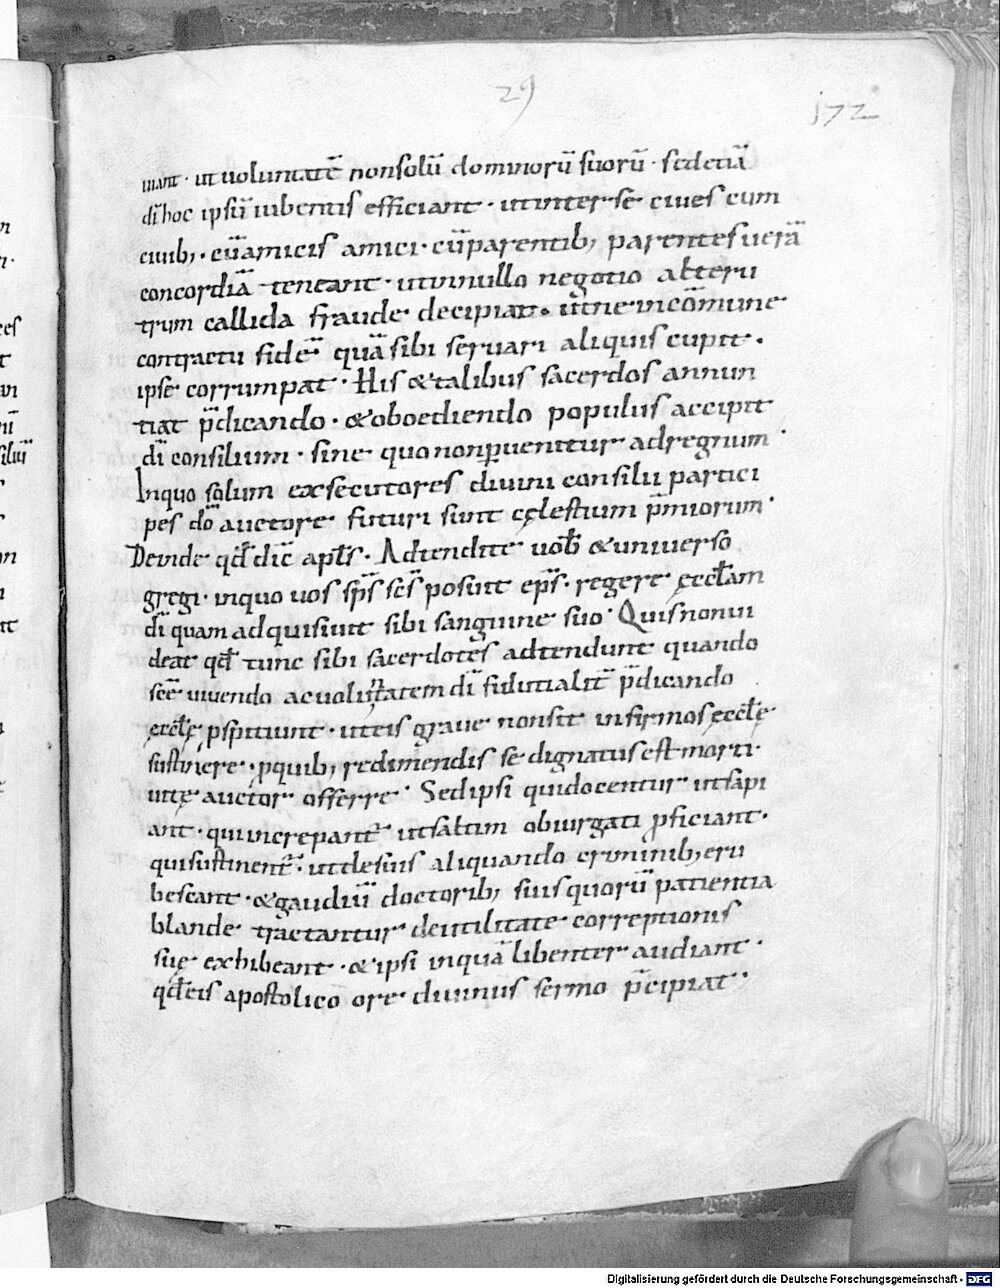 29
172
uiant · ut uoluntatē non solū dominorū suorū · sed etiā
dī hoc ipsū iubentis efficiant · ut inter se ciues cum
ciuib; · cū amicis amici · cū parentib; parentes uerā
concordiā teneant · ut in nullo negotio alteru
trum callida fraude decipiat · ut ne in cōmune
contractu fidē quā sibi seruari aliquis cupit ·
ipse corrumpat · His & talibus sacerdos annun
tiat p̄dicando · & oboediendo populus accipit
dī consilium · sine quo non ꝑuenitur ad regnum ·
In quo solum exsecutores diuini consilii partici
pes dō auctore futuri sunt cęlestium p̄miorum ·
Deinde qđ dic̄ apłs · Adtendite uob̄ & uniuerso
gregi · in quo uos sp̄s sc̄s posuit ep̄s · regere ęccłam
dī quam adquisiuit sibi sanguine suo · Quis non ui
deat qđ tunc sibi sacerdotes adtendunt quando
scē uiuendo ac uoluntatem dī fiducialit̄ p̄dicando
ęccłę ꝓspitiunt · ut eis graue non sit infirmos ęccłę
sustinere · ꝓ quib; redimendis se dignatus est morti
uitę auctor offerre · Sed ipsi qui docentur ut sapi
ant · qui increpant̄ ut saltim obiurgati ꝓficiant ·
qui sustinent̄ · ut de suis aliquando criminib; eru
bescant · & gaudiū doctorib; suis quorū patientia
blande tractantur de utilitate correptionis
suę exhibeant · & ipsi inquā libenter audiant ·
qđ eis apostolico ore diuinus sermo p̄cipiat ·
Digitalisierung gefördert durch die Deutsche Forschungsgemeinschaft - DFG